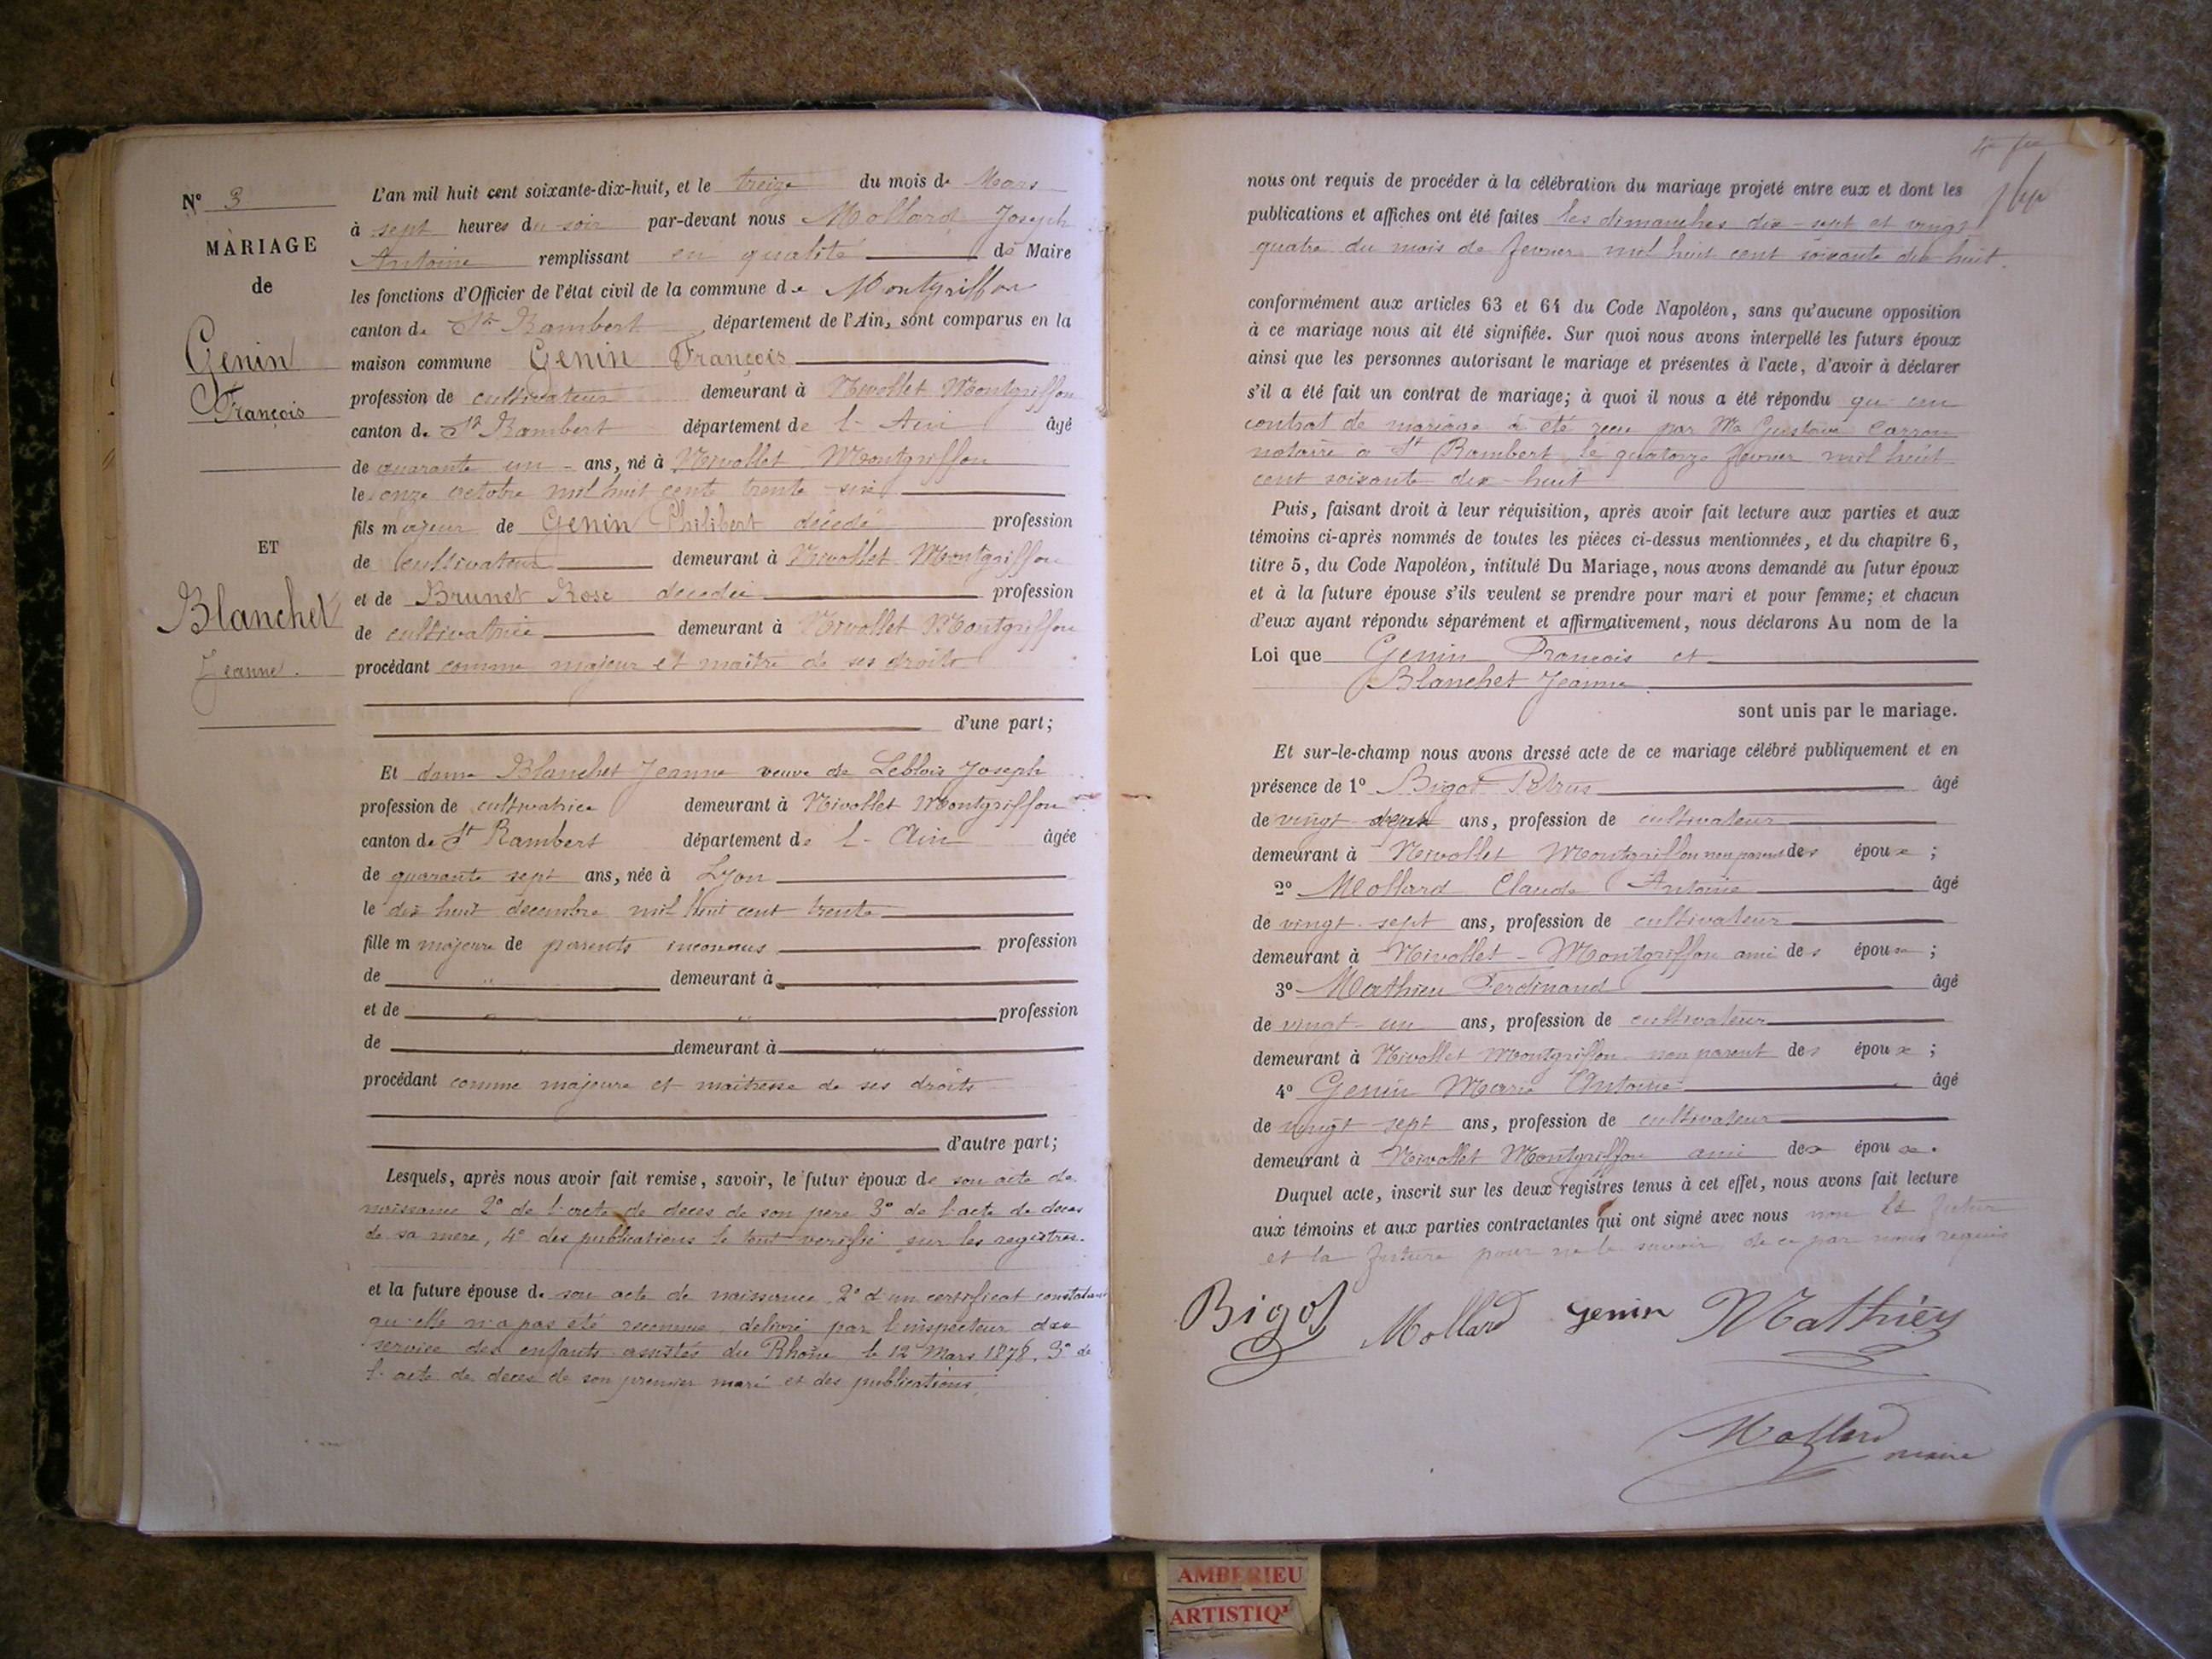 N° 3
MARIAGE
de
Genin
François
ET
Blanchet
Jeanne.
L'an mil huit cent soixante-dix-huit, et le treize du mois de Mars
à sept heures du soir par-devant nous Mollard Joseph
Antoine remplissant en qualité de Maire
les fonctions d'Officier de l'état civil de la commune de Montgriffon
canton de St Rambert département de l'Ain, sont comparus en la
maison commune Genin François
profession de cultivateur demeurant à Nivollet Montgriffon
canton de St Rambert département de l'Ain âgé
de quarante un ans, né à Nivollet Montgriffon
le onze octobre mil huit cents trente six
fils majeur de Genin Philibert décédé profession
de cultivateur demeurant à Nivollet Montgriffon
et de Brunet Rose décédée profession
de cultivatrice demeurant à Nivollet Montgriffon
procédant comme majeur et maître de ses droits
d'une part;
Et dame Blanchet Jeanne veuve de Leblois Joseph
profession de cultivatrice demeurant à Nivollet Montgriffon
canton de St Rambert département de l'Ain âgée
de quarante sept ans, née à Lyon
le dix huit decembre mil huit cent trente
fille m majeure de parents inconnus profession
de " demeurant à
et de " " profession
de " demeurant à "
procédant comme majeure et maitresse de ses droits
d'autre part;
Lesquels, après nous avoir fait remise, savoir, le futur époux de son acte de
naissance 2° de l'acte de deces de son pere 3° de l'acte de deces
de sa mere, 4° des publications le tout verifié sur les registres.
et la future épouse de son acte de naissance 2° d'un certificat constatant
qu'elle n'a pas été reconnue, delivré par l'inspecteur des
service des enfants assistés du Rhône le 12 Mars 1878. 3° de
l'acte de deces de son premier mari et des publications.
nous ont requis de procéder à la célébration du mariage projeté entre eux et dont les
publications et affiches ont été faites les dimanches dix-sept et vingt
quatre du mois de fevrier mil huit cent soixante dix huit.
conformément aux articles 63 et 64 du Code Napoléon, sans qu'aucune opposition
à ce mariage nous ait été signifiée. Sur quoi nous avons interpellé les futurs époux
ainsi que les personnes autorisant le mariage et présentes à l'acte, d'avoir à déclarer
s'il a été fait un contrat de mariage; à quoi il nous a été répondu qu'un
contrat de mariage a été reçu par Me Gustave Carron
notaire à St Rambert le quatorze fevrier mil huit
cent soixante dix-huit
Puis, faisant droit à leur réquisition, après avoir fait lecture aux parties et aux
témoins ci-après nommés de toutes les pièces ci-dessus mentionnées, et du chapitre 6,
titre 5, du Code Napoléon, intitulé Du Mariage, nous avons demandé au futur époux
et à la future épouse s'ils veulent se prendre pour mari et pour femme; et chacun
d'eux ayant répondu séparément et affirmativement, nous déclarons Au nom de la
Loi que Genin François et
Blanchet Jeanne
sont unis par le mariage.
Et sur-le-champ nous avons dressé acte de ce mariage célébré publiquement et en
présence de 1° Bigot Petrus âgé
de vingt sept ans, profession de cultivateur
demeurant à Nivollet Montgriffon non parent des époux ;
2° Mollard Claude Antoine âgé
de vingt-sept ans, profession de cultivateur
demeurant à Nivollet-Montgriffon ami des époux ;
3° Mathieu Ferdinand âgé
de vingt-un ans, profession de cultivateur
demeurant à Nivollet Montgriffon non parent des époux ;
4° Genin Marie Antoine âgé
de vingt sept ans, profession de cultivateur
demeurant à Nivollet Montgriffon ami des époux.
Duquel acte, inscrit sur les deux registres tenus à cet effet, nous avons fait lecture
aux témoins et aux parties contractantes qui ont signé avec nous non le futur
et la future pour ne le savoir de ce par nous requis
Bigot Mollard Genin Mathieu
Mollard
maire
AMBERIEU
ARTISTIQ